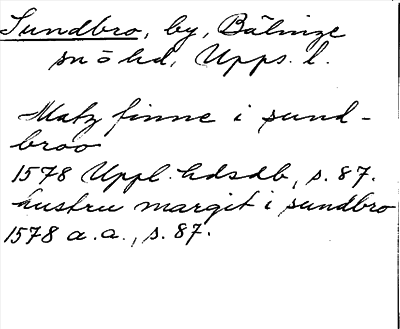 Sundbro, by, Bälinge
sn o hd, Upps. l.
Matz finne i sund-
broo
1578 Uppl. hdsdb, s. 87.
hustru margit i sundbro
1578 a. a., s. 87.